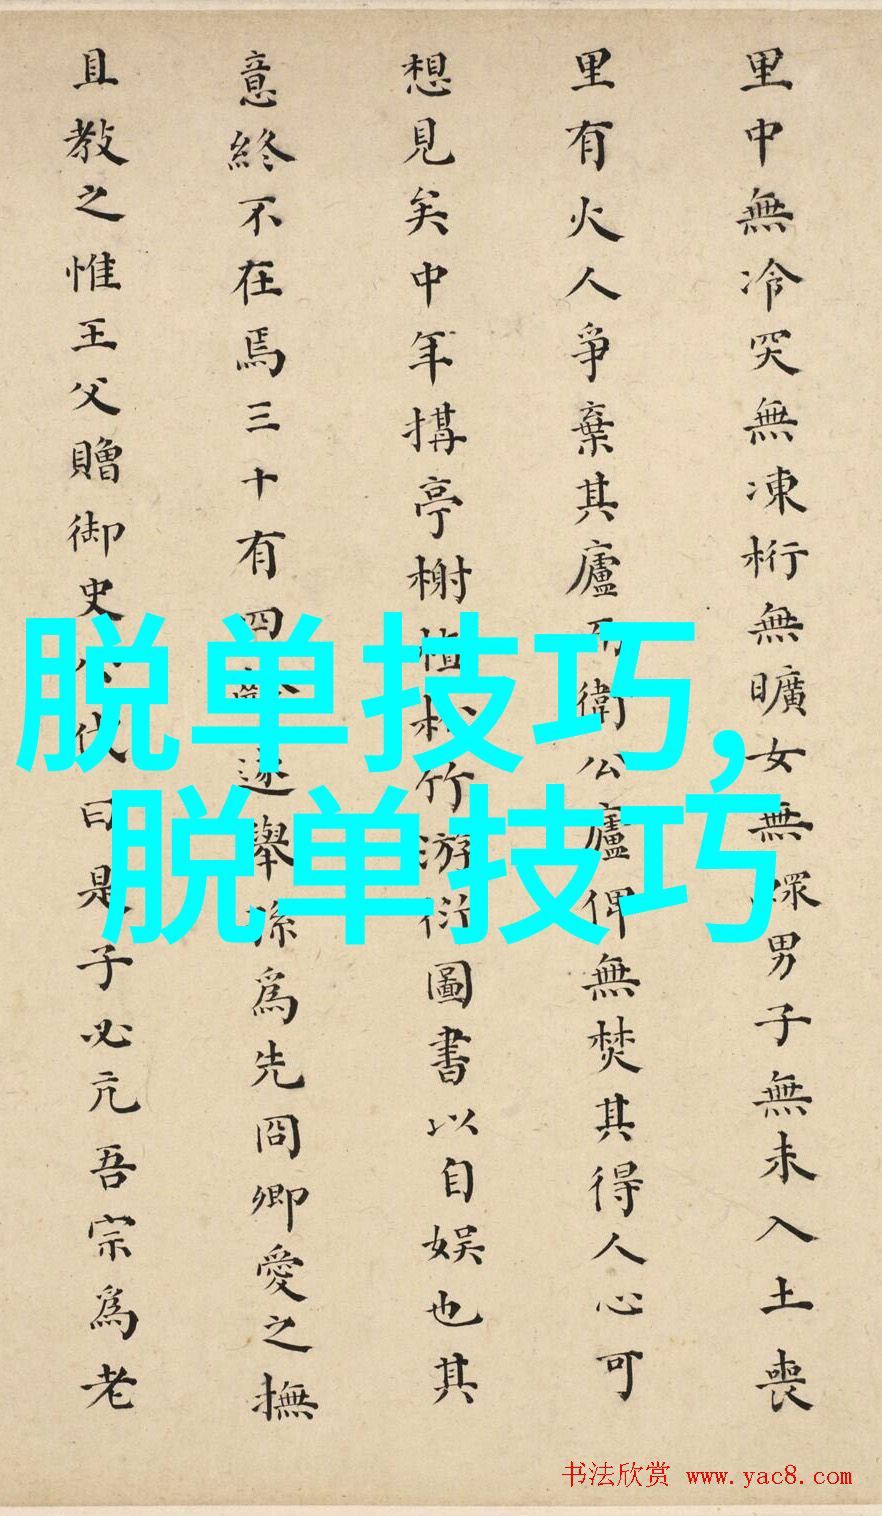 里中無冷突無凍桁無曠女無鰥男子無未入土喪
里有火人爭棄其廬而衛公廬俾無焚其得人心可
想見矣中年搆亭榭植松竹游衍圖書以自娛也其
意終不在焉三十有四歲遂舉孫爲先冏卿愛之撫
且教之惟王父贈御史代曰是子必亢吾宗爲老
脱单技巧,
脱单技巧
书法欣赏 www.yac8.com